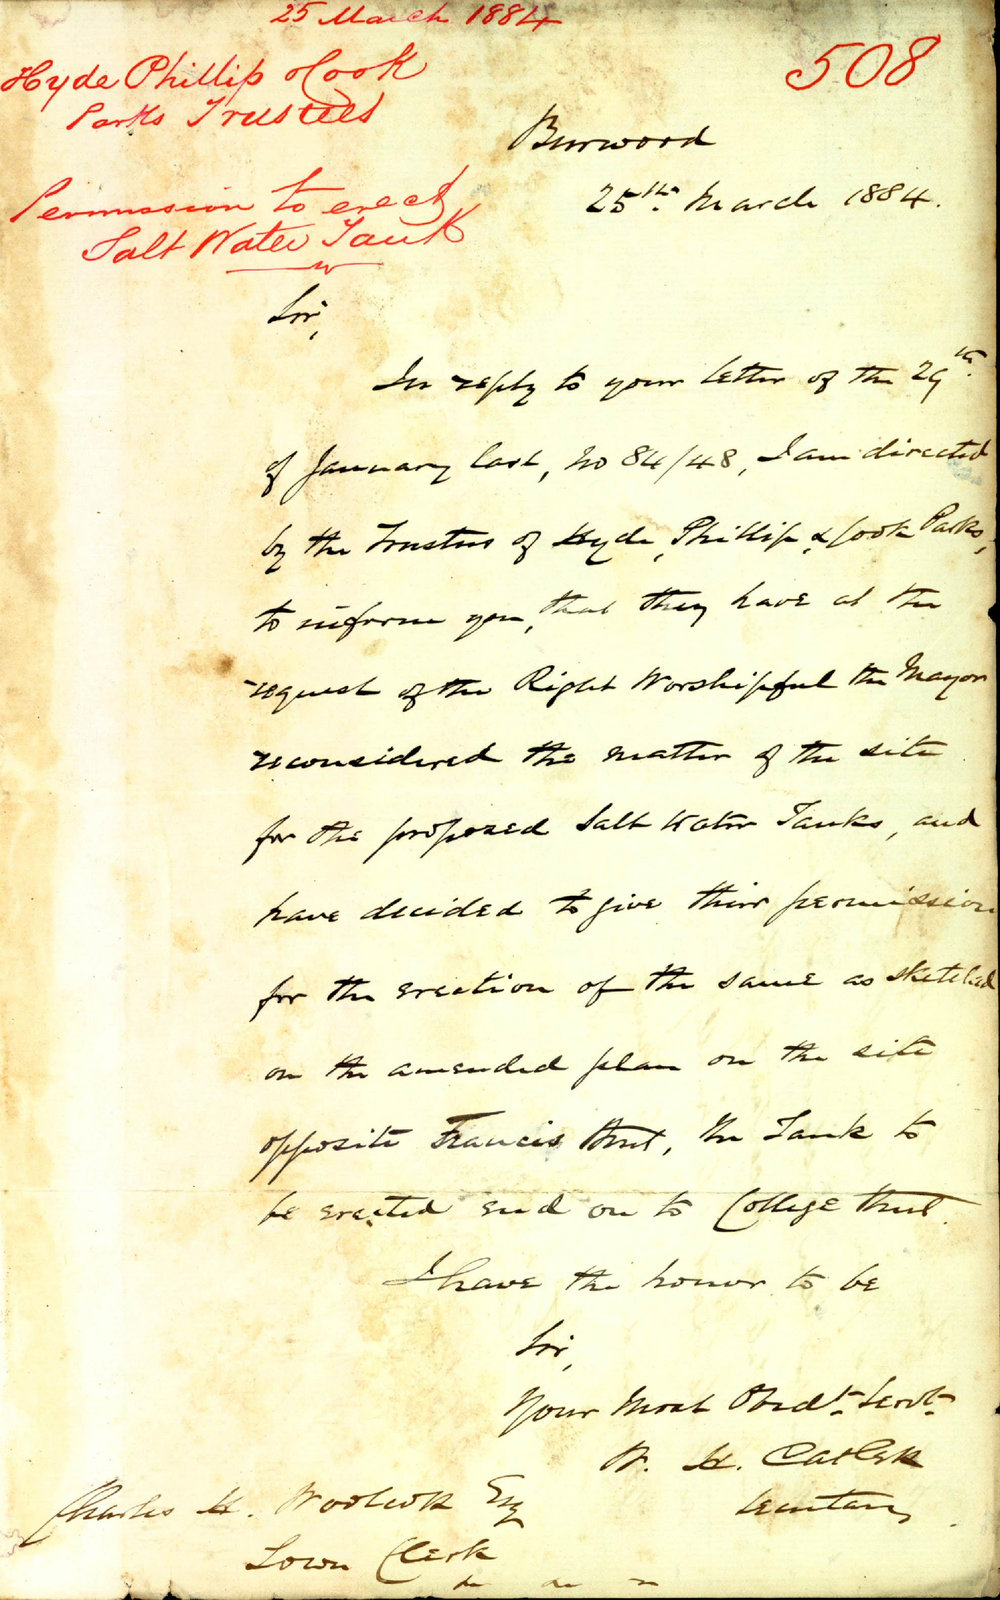 25 March 1884
508
Hyde Phillip & Cook
Parks Trustees
Permission to erect
Salt Water Tank
Burwood
25th. March 1884.
Sir,
In reply to your letter of the 29th.
of January last, No 84/48, I am directed
by the Trustees of Hyde, Phillip, & Cook Parks,
to inform you, that they have at the
request of the Right Worshipful the Mayor
reconsidered the matter of the site
for the proposed Salt Water Tanks, and
have decided to give their permission
for the erection of the same as sketched
on the amended plan on the site
opposite Francis Street, the Tank to
be erected end on to College Street.
I have the honor to be
Sir,
Your Most Obedt. Servt.
W. H. Catlett
Secretary.
Charles H. Woolcott Esq
Town Clerk